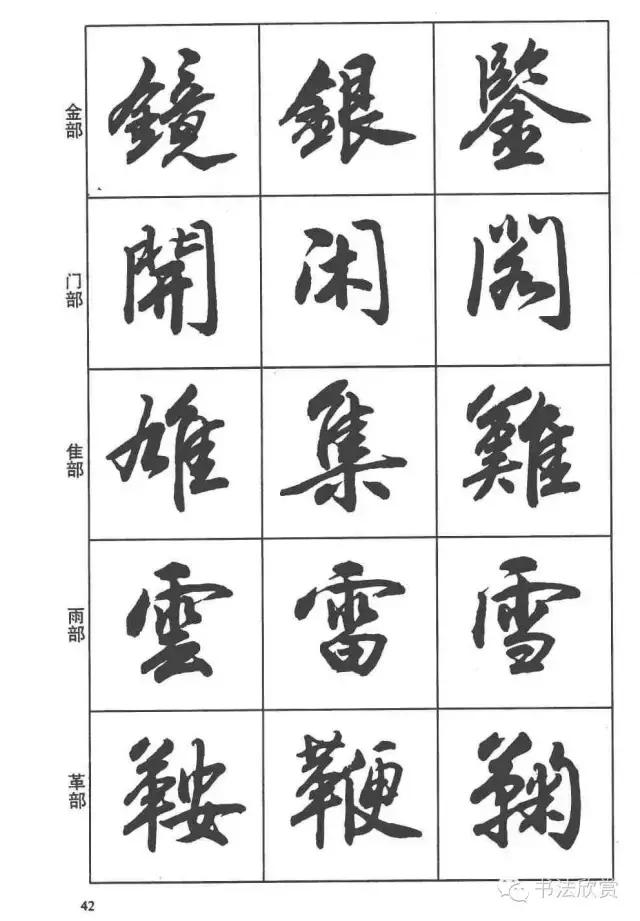 金部 鏡 銀 鑒
门部 開 闲 閣
隹部 雄 集 難
雨部 雲 雷 雪
革部 鞍 鞭 鞠
42
书法欣赏